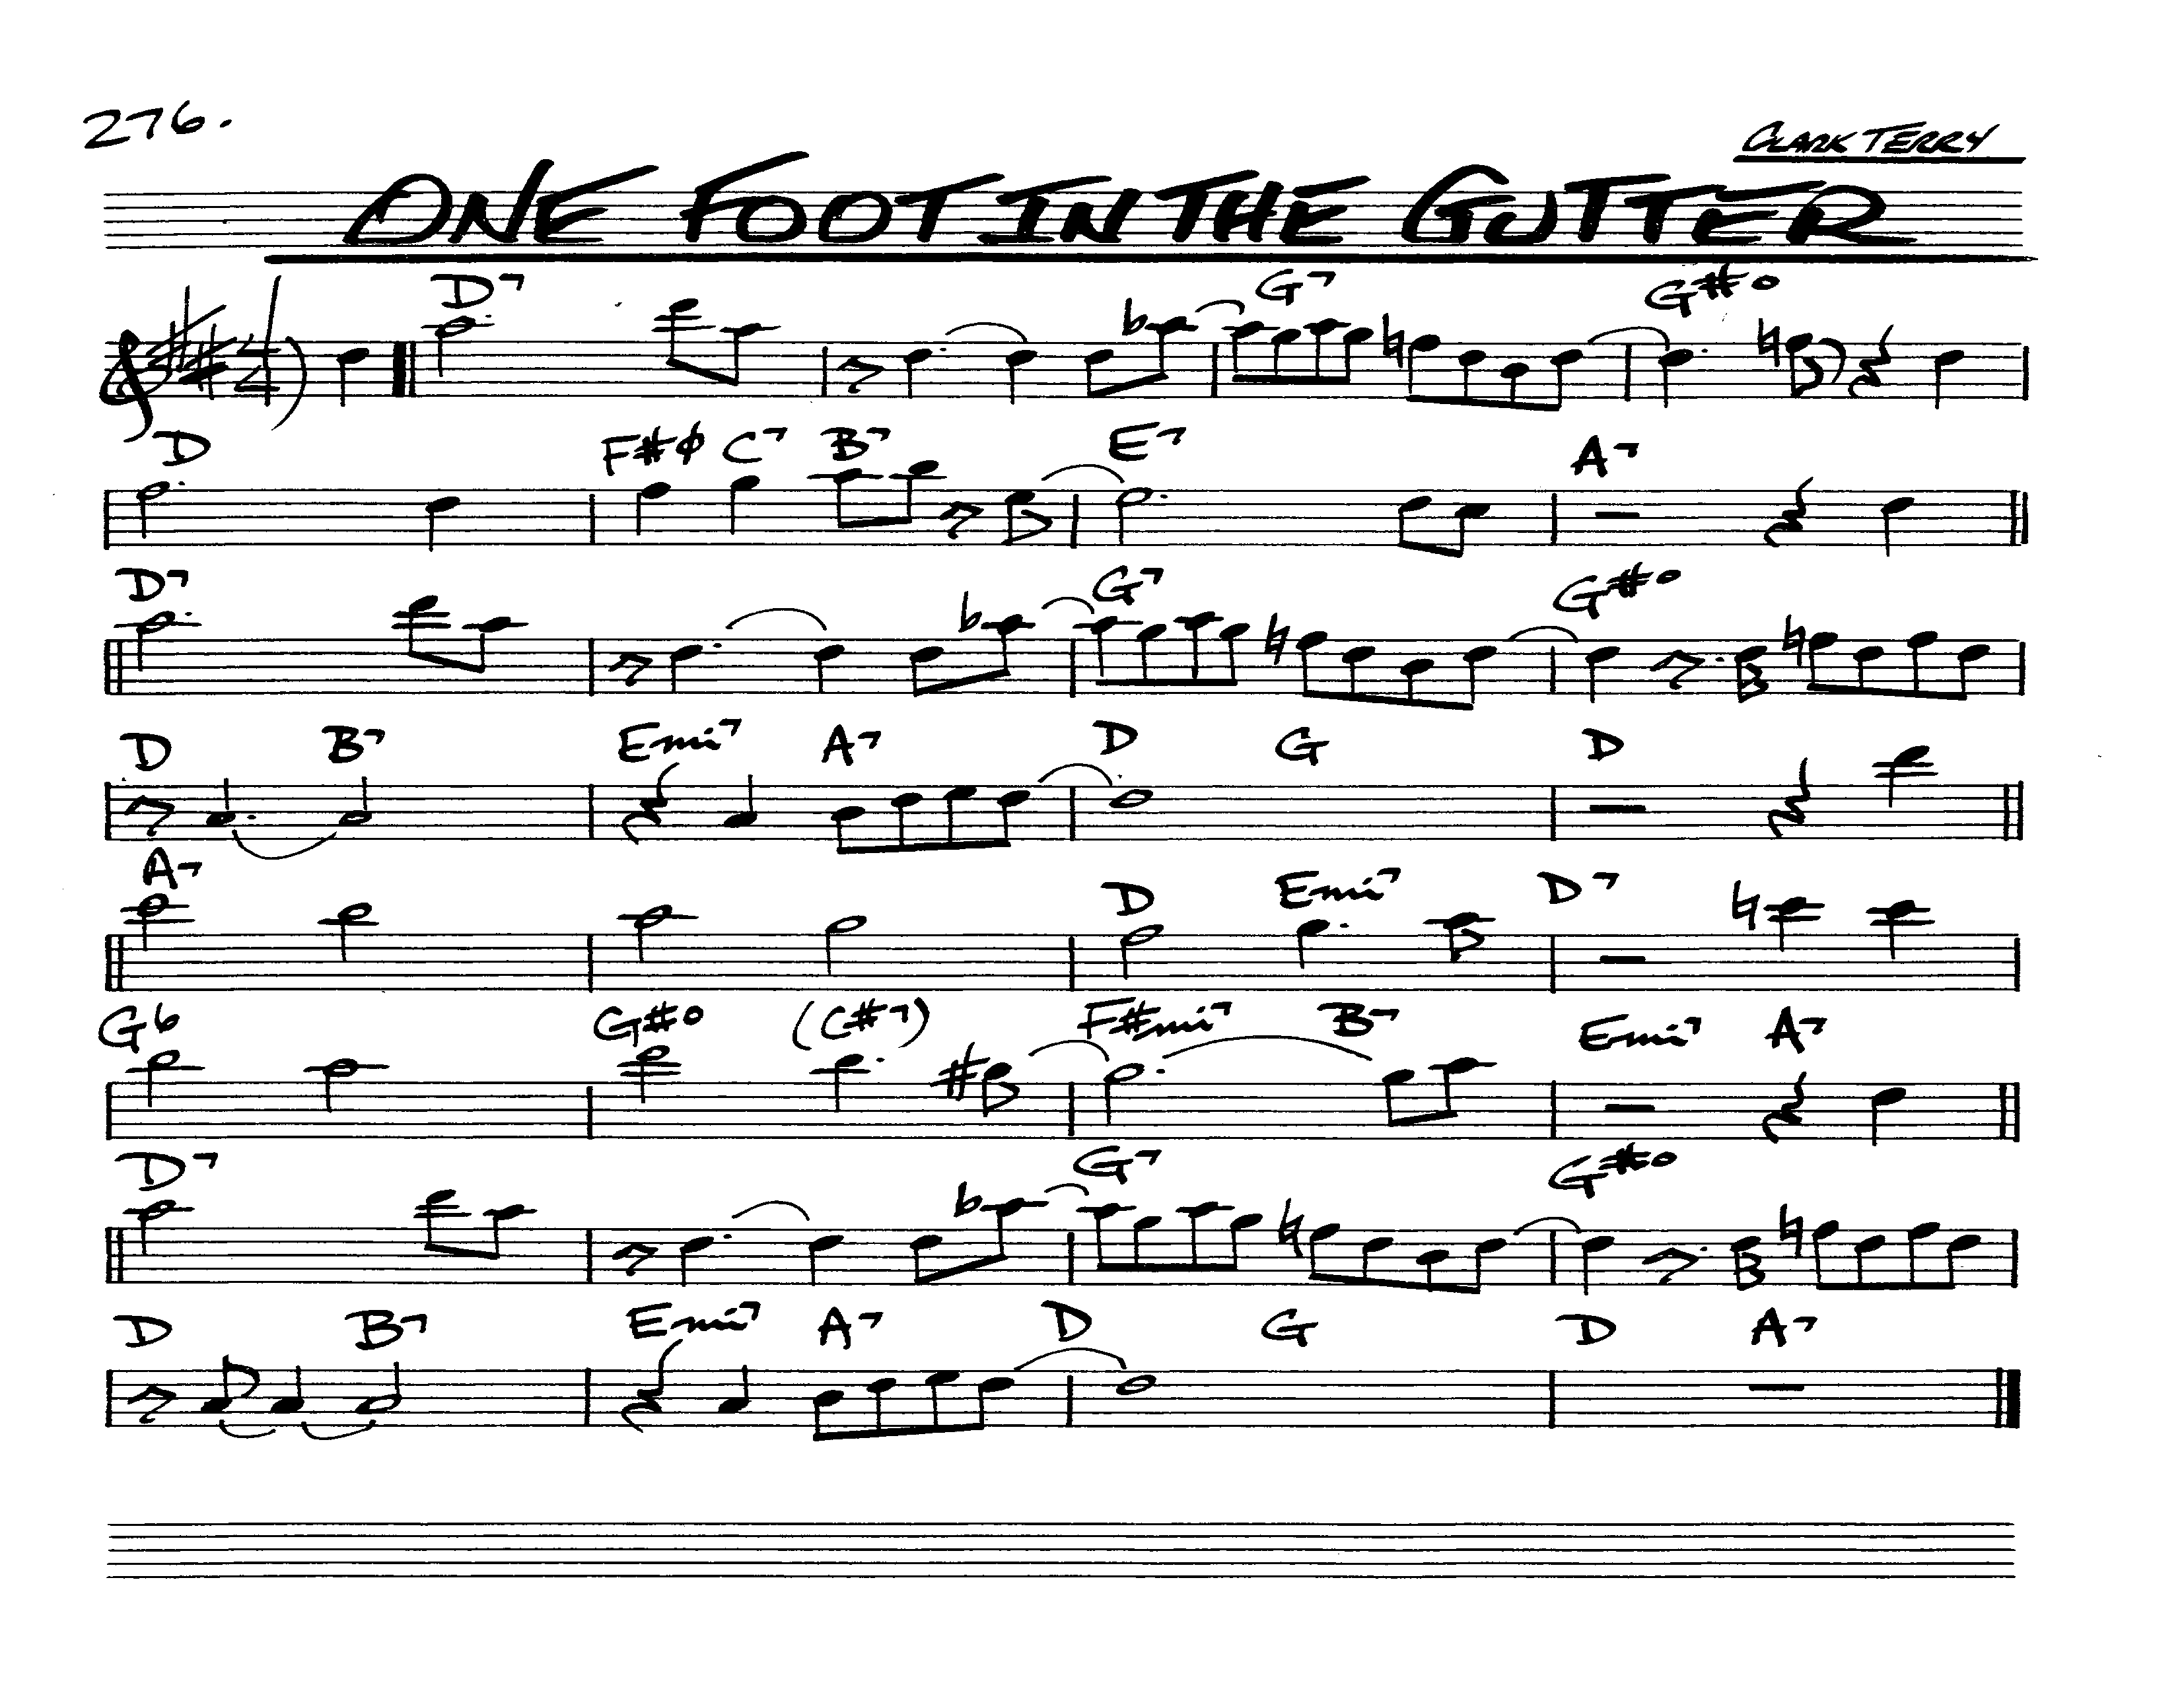 276.
CLARK TERRY
ONE FOOT IN THE GUTTER
4/4)
D7 G7 G#o
D F#ø C7 B7 E7 A7
D7 G7 G#o
D B7 Emi7 A7 D G D
A7 D Emi7 D7
G6 G#o (C#7) F#mi7 B7 Emi7 A7
D7 G7 G#o
D B7 Emi7 A7 D G D A7